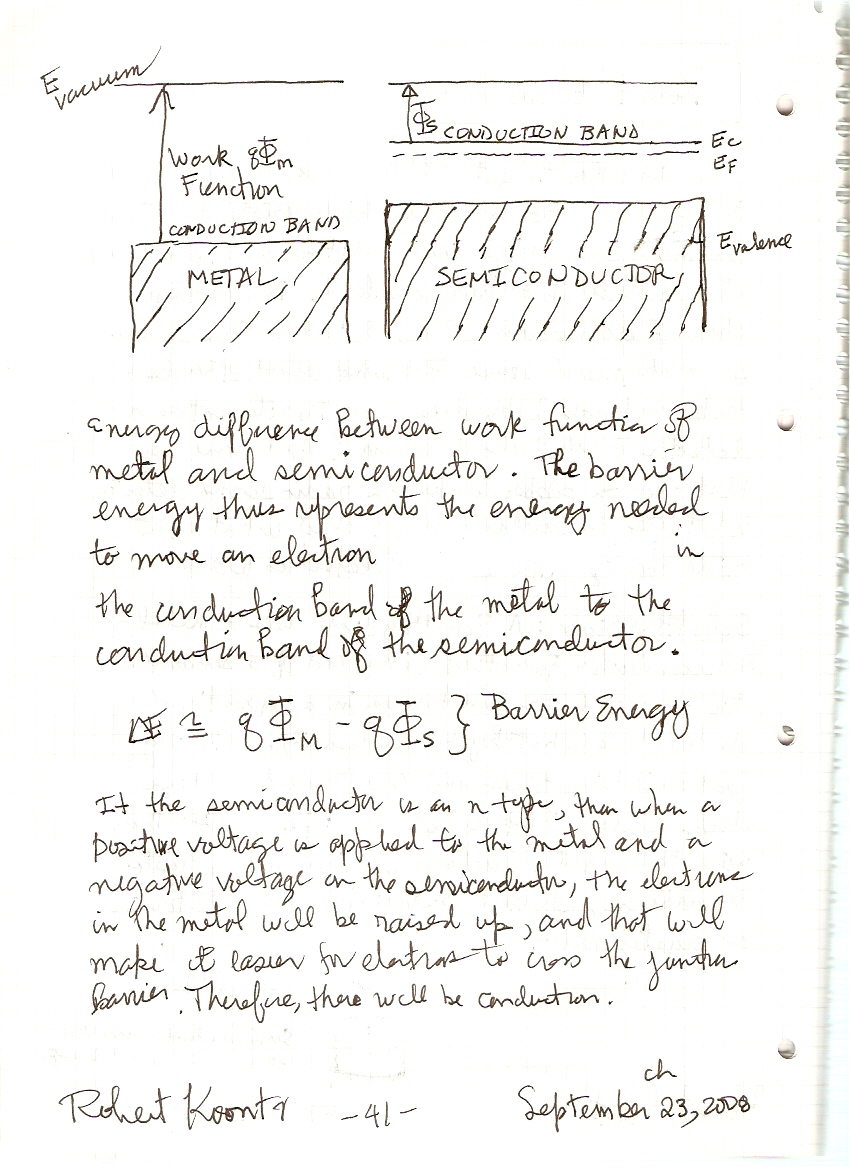 E vacuum
Φs CONDUCTION BAND
Ec
EF
Work qΦm
Function
CONDUCTION BAND
METAL
SEMICONDUCTOR
Evalence
Energy difference between work function of
metal and semiconductor. The barrier
energy thus represents the energy needed
to move an electron in
the conduction band of the metal to the
conduction band of the semiconductor.
ΔE ≅ qΦM - qΦs } Barrier Energy
If the semiconductor is an n type, then when a
positive voltage is applied to the metal and a
negative voltage on the semiconductor, the electrons
in the metal will be raised up, and that will
make it easier for electrons to cross the junction
barrier. Therefore, there will be conduction.
Robert Koontz -41- September 23, 2008